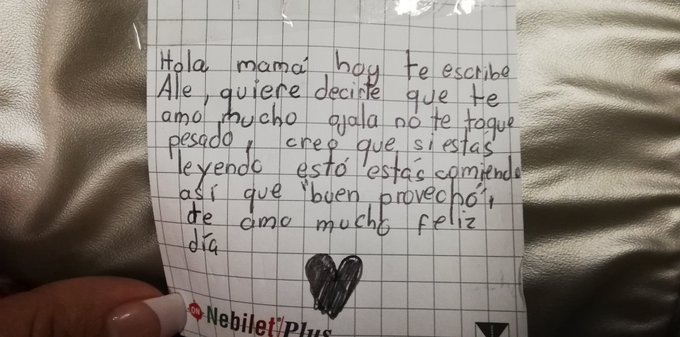 Hola mamá hoy te escribe
Ale, quiere decirte que te
amo mucho ojala no te toque
pesado, creo que si estás
leyendo estó estás comiendo
así que "buen provechó",
te amo mucho feliz
día
Nebilet Plus